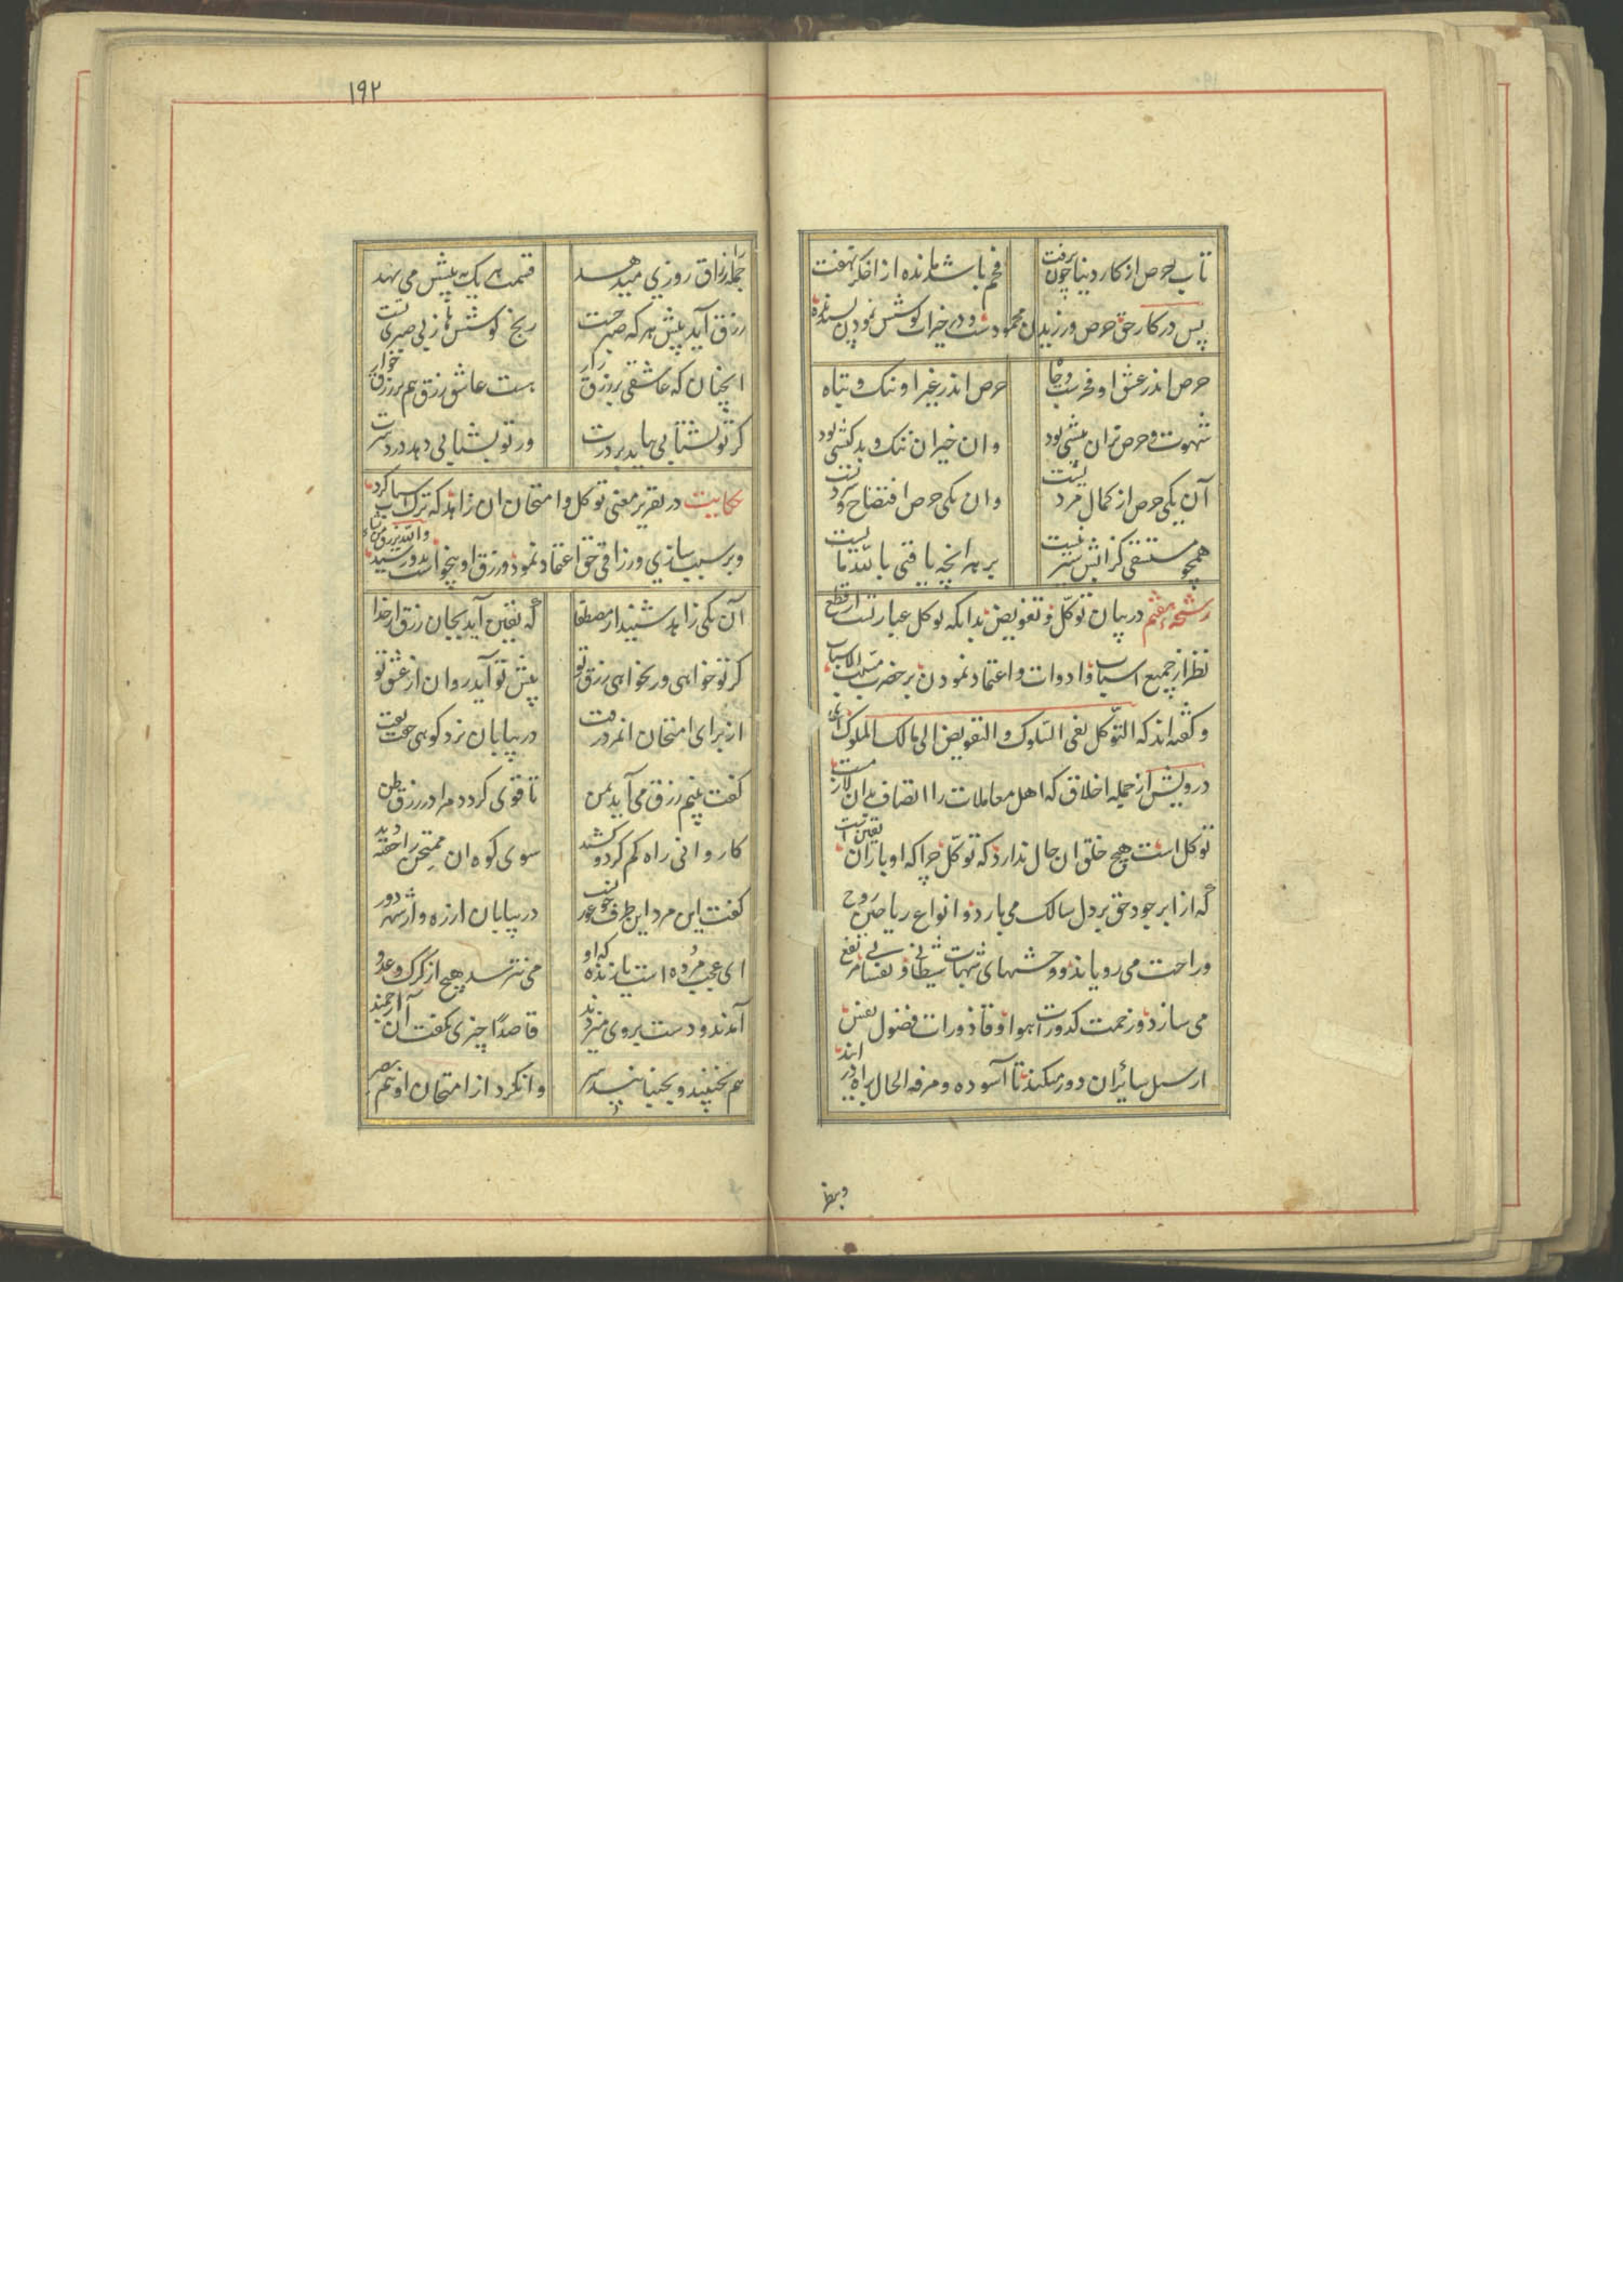 تاب حرص از کار دنیا چون برفت
فحم باشد مانده از اخکر بتفت
پس در کار حق حرص ورزیدن محمودست و در خیرات کوشش نمودن پسندیده
حرص اندر عشق او فخرست و جاه
حرص اندر غیر او ننک و تباه
شهوت و حرص نران پیشی بود
وان حیزان ننک و بدکیشی بود
آن یکی حرص از کمال مردیست
وان یکی حرص افتضاح و سردیست
همچو مستسقی کز آبش سیر نیست
بر هر انچه یافتی بالله مایست
رشحه هفتم در بیان توکل و تفویض بدانکه توکل عبارتست از قطع
نظر از جمیع اسباب و ادوات و اعتماد نمودن بر حضرت مسبب الاسباب
و کفته اند که التوکل نفی السلوک و التفویض الی مالک الملوک ای
درویش از جمله اخلاق که اهل معاملات را اتصاف بدان لازمست
توکل است هیچ خلق ان حال ندارد که توکل چرا که او باران یقین است
که از ابر جود حق بر دل سالک می بارد و انواع ریاحین روح
و راحت می رویاند و شبهات شیطانی و نفسانی
می سازد و زحمت کدورت اهوا و قاذورات فضول نفس
از سبل سائران دور میکند تا آسوده و مرفه الحال براه در ایند
وبنظر
۱۹۲
جمله را رزاق روزی میدهد
قسمت هر یک به پیش می نهد
رزق آید پیش هر که صبر جست
رنج کوششها ز بی صبری تست
انچنان که عاشقی بر رزق زار
هست عاشق رزق هم بر رزق خوار
کر تو نشتابی بیاید بر درت
ور تو بشتابی دهد درد سرت
حکایت در تقریر معنی توکل و امتحان ان زاهد که ترک اسباب کرد
و بر سبب سازی و رزاقی حق اعتماد نمود و رزق او بیخواست بدو رسید
آن یکی زاهد شنید از مصطفا
که یقین آید بجان رزق از خدا
کر تو خواهی ور نخواهی رزق تو
پیش تو آید روان از عشق تو
از برای امتحان انمرد رفت
در بیابان نزد کوهی خفت تفت
کفت بینم رزق می آید بمن
تا قوی کردد مرا در رزق ظن
کاروانی راه کم کرد و کشید
سوی کوه ان ممتحن را خفته دید
کفت این مرد این طرف چونست عور
در بیابان از ره و از شهر دور
ای عجب مرده است یا زنده که او
می نترسد هیچ از کرک و عدو
آمدند و دست بر وی میزدند
قاصدا چیزی نکفت آن ارجمند
هم نجنبید و نجنبانید سر
وا نکرد از امتحان او هم بصر